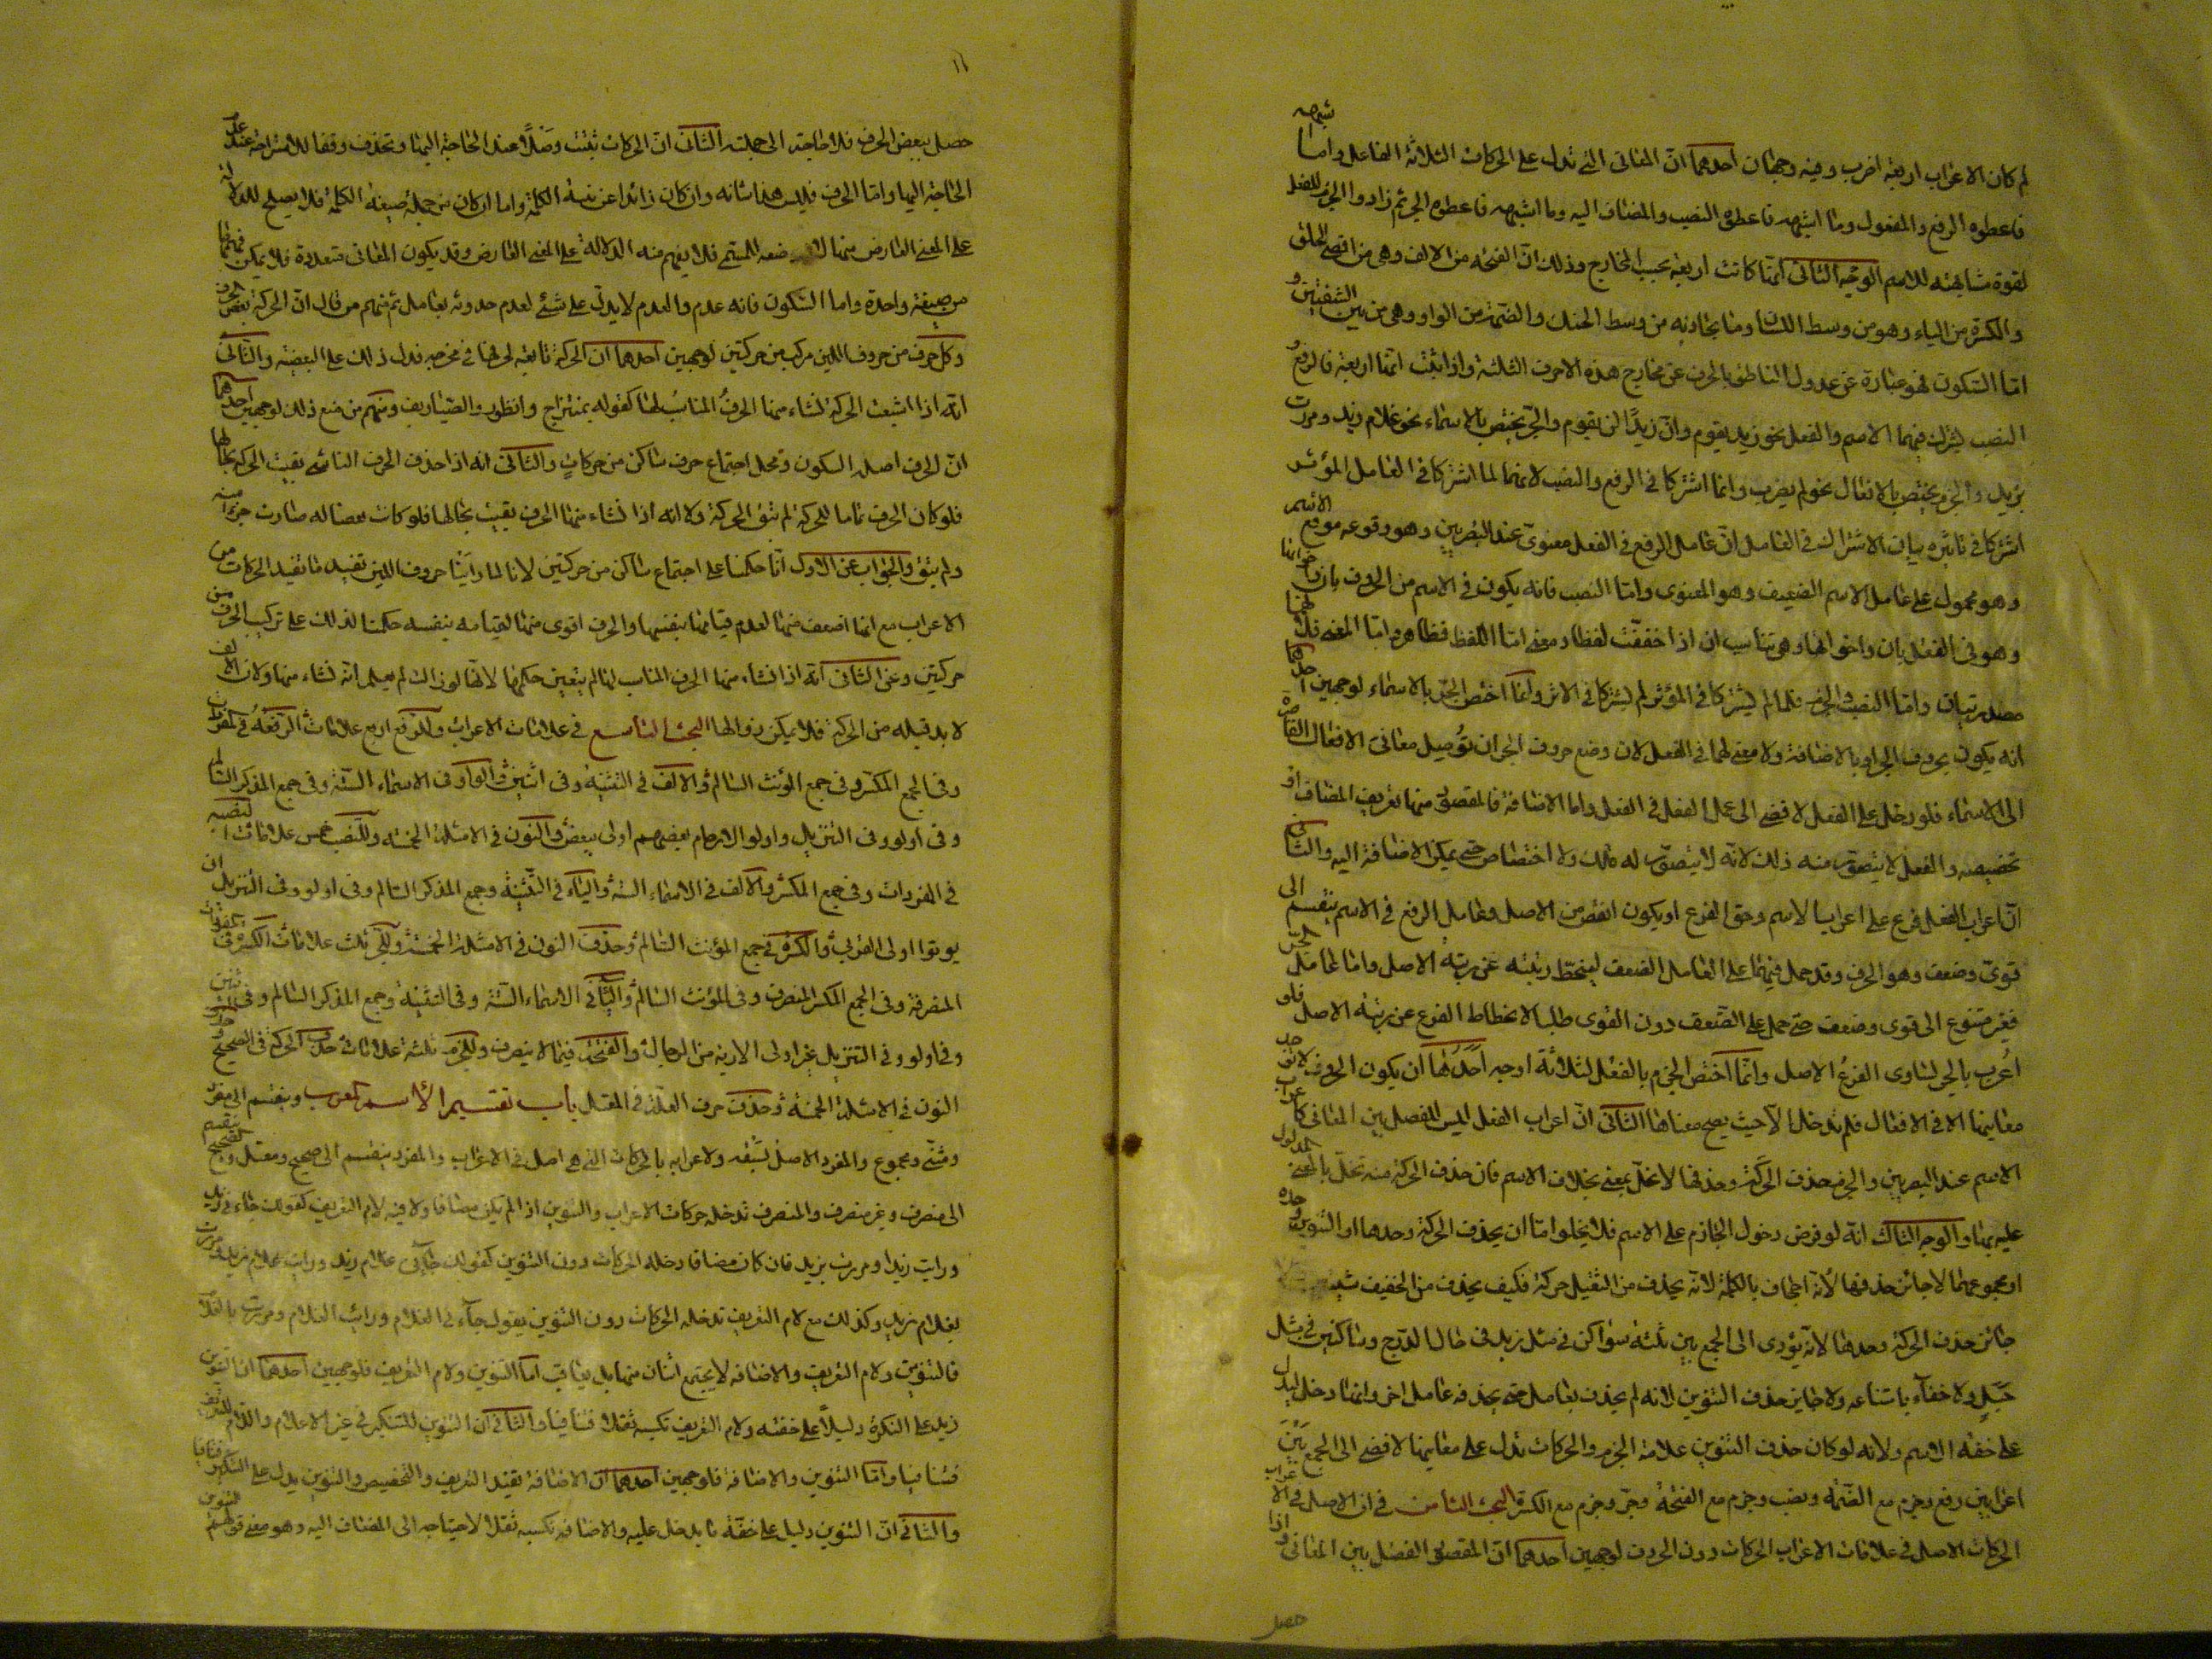 لم كان الاعراب اربعة اضرب وفيه وجهان احدهما ان المعانى التى تدل على الحركات الثلاثة الفاعل واما شبهه
فاعطوه الرفع والمفعول وما اشبهه فاعطوه النصب والمضاف اليه وما اشبهه فاعطوه الجر ثم زادوا الجزم للفعل
لقوة مشابهته للاسم الوجه الثانى انما كانت اربعة بحسب المخارج وذلك ان الفتحة من الالف وهى من اقصى الحلق
والكسرة من الياء وهو من وسط اللسان وما يحاذيه من وسط الحنك والضمة من الواو وهى من بين الشفتين و
اما السكون فهو عبارة عن عدول الناطق بالحرف عن مخارج هذه الاحرف الثلثة واذا ثبت انها اربعة فالرفع و
النصب يشترك فيهما الاسم والفعل نحو زيد يقوم وان زيدا لن يقوم والجر يختص بالاسماء نحو غلام زيد ومررت
بزيد والجزم يختص بالافعال نحو لم يضرب وانما اشتركا فى الرفع والنصب لانهما لما اشتركا فى العامل المؤثر
اشتركا فى تاثيره بيان الاشتراك فى العامل ان عامل الرفع فى الفعل معنوى عند البصريين وهو وقوعه موقع الاسم
وهو محمول على عامل الاسم الضعيف وهو المعنوى واما النصب فانه يكون فى الاسم من الحروف بان واخواتها
وهو فى الفعل بان واخواتها وهى تناسب ان اذا خففت لفظا ومعنى اما اللفظ فظاهر واما المعنى فلانهما
مصدريتان واما النصب والجزم فلما لم يشتركا فى المؤثر لم يشتركا فى الاثر وانما اختص الجر بالاسماء لوجهين احدهما
انه يكون بحروف الجر او بالاضافة ولا معنى لهما فى الفعل لان وضع حروف الجر ان توصل معانى الافعال القاصرة
الى الاسماء فلو دخل على الفعل لافضى الى عمل الفعل فى الفعل واما الاضافة فالمقصود منها تعريف المضاف او
تخصيصه والفعل لا يتصور منه ذلك لانه لا يتصور له ملك ولا اختصاص حتى يمكن الاضافة اليه والثانى
ان اعراب الفعل فرع على اعراب الاسم وحق الفرع ان يكون انقص من الاصل وعامل الرفع فى الاسم ينقسم الى
قوى وضعف وهو الحرف وقد حمل فيهما على العامل الضعف لينحط رتبته عن رتبة الاصل واما عامل الجر
فغير متنوع الى قوى وضعف حتى حمل على الضعف دون القوى طلبا لانحطاط الفرع عن رتبة الاصل فلو
اعرب بالجر لساوى الفرع الاصل وانما اختص الجزم بالفعل لثلاثة اوجه احدها ان يكون الحروف
معانيها الا فى الافعال فلم تدخل الا حيث يصح معناها الثانى ان اعراب الفعل ليس للفصل بين المعانى كاعراب
الاسم عند البصريين والجزم بحذف الحركة وحذفها لا تخل بمعنى بخلاف الاسم فان حذف الحركة منه تخل بالمعنى المدلول
عليه بها والوجه الثالث انه لو فرض دخول الجازم على الاسم فلا يخلو اما ان يحذف الحركة وحدها او التنوين وحده
او مجموعهما لا جائز حذفهما لانه اجحاف بالكلمة لانه يحذف من الثقيل حركة فكيف يحذف من الخفيف شيئين
جائز حذف الحركة وحدها لانه يؤدى الى الجمع بين ثلثة سواكن فى مثل زيد فى حال الدرج وساكنين فى مثل
جبل ولا خفاء بامتناعه ولا جائز حذف التنوين لانه لم يحذف بعامل حتى يحذفه عامل اخر وانما دخل ليدل
على خفة الاسم ولانه لو كان حذف التنوين علامة الجزم والحركات تدل على معانيها لافضى الى الجمع بين
اعرابين رفع وجزم مع الضمة ونصب وجزم مع الفتحة وجر وجزم مع الكسرة البحث الثامن فى ان الاصل فى الاعراب
الحركات الاصل فى علامات الاعراب الحركات دون الحروف لوجهين احدهما ان المقصود الفصل بين المعانى واذا
حصل
١١
حصل ببعض الحرف فلا حاجة الى جملته الثانى ان الحركات تثبت وصلا عند الحاجة اليها وتحذف وقفا للاستراحة عند عدم
الحاجة اليها واما الحرف فليس هذا شانه وان كان زائدا عن بنية الكلمة واما ان كان من جملة صيغة الكلمة فلا يصلح للدلالة
على المعنى العارض فلا يفهم منه الدلالة على المعنى العارض وقد يكون المعانى متعددة فلا يمكن فهمها
من صيغة واحدة واما السكون فانه عدم والعدم لا يدل على شئ لعدم حدوثه بعامل ثم منهم من قال ان الحركة بعض الحرف
وكل حرف من حروف اللين مركب من حركتين لوجهين احدهما ان الحركة تابعة لحرفها فى مخرجه فدل ذلك على البعضية والثانى
انه اذا اشبعت الحركة نشاء منها الحرف المناسب لها كقوله بمنتزاح وانظور والصياريف ومنهم من منع ذلك لوجهين احدهما
ان الحرف اصله السكون ومحل اجتماع حرف ساكن من حركات والثانى انه اذا حذف الحرف الناشى بقيت الحركة بحالها
فلو كان الحرف تماما للحركة لم تبق الحركة ولانه اذا نشاء منها الحرف بقيت بحالها فلو كانت بعضا له صارت جزءا منه
ولم يبق والجواب عن الاول انا حكمنا على اجتماع ساكن من حركتين لانا لما راينا حروف اللين تفيد ما تفيد الحركات من
الاعراب مع انها اضعف منها لعدم قيامها بنفسها والحرف اقوى منها لقيامه بنفسه حكمنا لذلك على تركيب الحرف من
حركتين وعن الثانى انه اذا انشاء منها الحرف المناسب لها لم يتعين حكمها لانها لو زالت لم يعلم انه نشاء منها ولان الالف
لا بد قبله من الحركة فلا يمكن زوالها البحث التاسع فى علامات الاعراب وللرفع اربع علامات الرفعة فى المفردات
وفى الجمع المكسر وفى جمع المؤنث السالم والالف فى التثنية وفى اثنين والواو فى الاسماء الستة وفى جمع المذكر السالم
وفى اولو وفى التنزيل واولو الارحام بعضهم اولى ببعض والنون فى الامثلة الخمسة وللنصب خمس علامات النصبة
فى المفردات وفى جمع المكسر والالف فى الاسماء الستة والياء فى التثنية وجمع المذكر السالم وفى اولو وفى التنزيل ان
يوتوا اولى القربى والكسرة فى جمع المؤنث السالم وحذف النون فى الامثلة الخمسة وللجر ثلث علامات الكسرة فى المفردات
المنصرفة وفى الجمع المكسر المنصرف وفى المؤنث السالم والياء فى الاسماء الستة وفى التثنية وجمع المذكر السالم وفى
وفى اولو وفى التنزيل غير اولى الاربة من الرجال والفتحة فيما لا ينصرف وللجزم ثلثة علامات حذف الحركة فى الصحيح وحذف
النون فى الامثلة الخمسة وحذف حرف العلة فى المعتل باب تقسيم الاسم المعرب وينقسم الى مفرد
ومثنى ومجموع والمفرد الاصل لسبقه ولاعرابه بالحركات التى هى اصل فى الاعراب والمفرد ينقسم الى صحيح ومعتل والصحيح ينقسم
الى منصرف وغير منصرف والمنصرف تدخله حركات الاعراب والتنوين اذا لم يكن مضافا ولا فيه لام التعريف كقولك جاءنى زيد
ورايت زيدا ومررت بزيد فان كان مضافا دخله الحركات دون التنوين كقولك جاءنى غلام زيد ورايت غلام زيد ومررت
بغلام زيد وكذلك مع لام التعريف تدخله الحركات دون التنوين يقول جاءنى الغلام ورايت الغلام ومررت بالغلام
فالتنوين ولام التعريف والاضافة لا يجتمع اثنان منها بل يتعاقب اما التنوين ولام التعريف فلوجهين احدهما ان التنوين
زيد على النكرة دليلا على خفته ولام التعريف تكسبه ثقلا فتنافيا والثانى ان التنوين للتنكير فى غير الاعلام واللام للتعريف
فتنافيا واما التنوين والاضافة فلوجهين احدهما ان الاضافة تفيد التعريف والتخصيص والتنوين يدل على التنكير فتنافيا
والثانى ان التنوين دليل على خفة ما يدخل عليه والاضافة تكسبه ثقلا لاحتياجه الى المضاف اليه وهو معنى قولهم التنوين